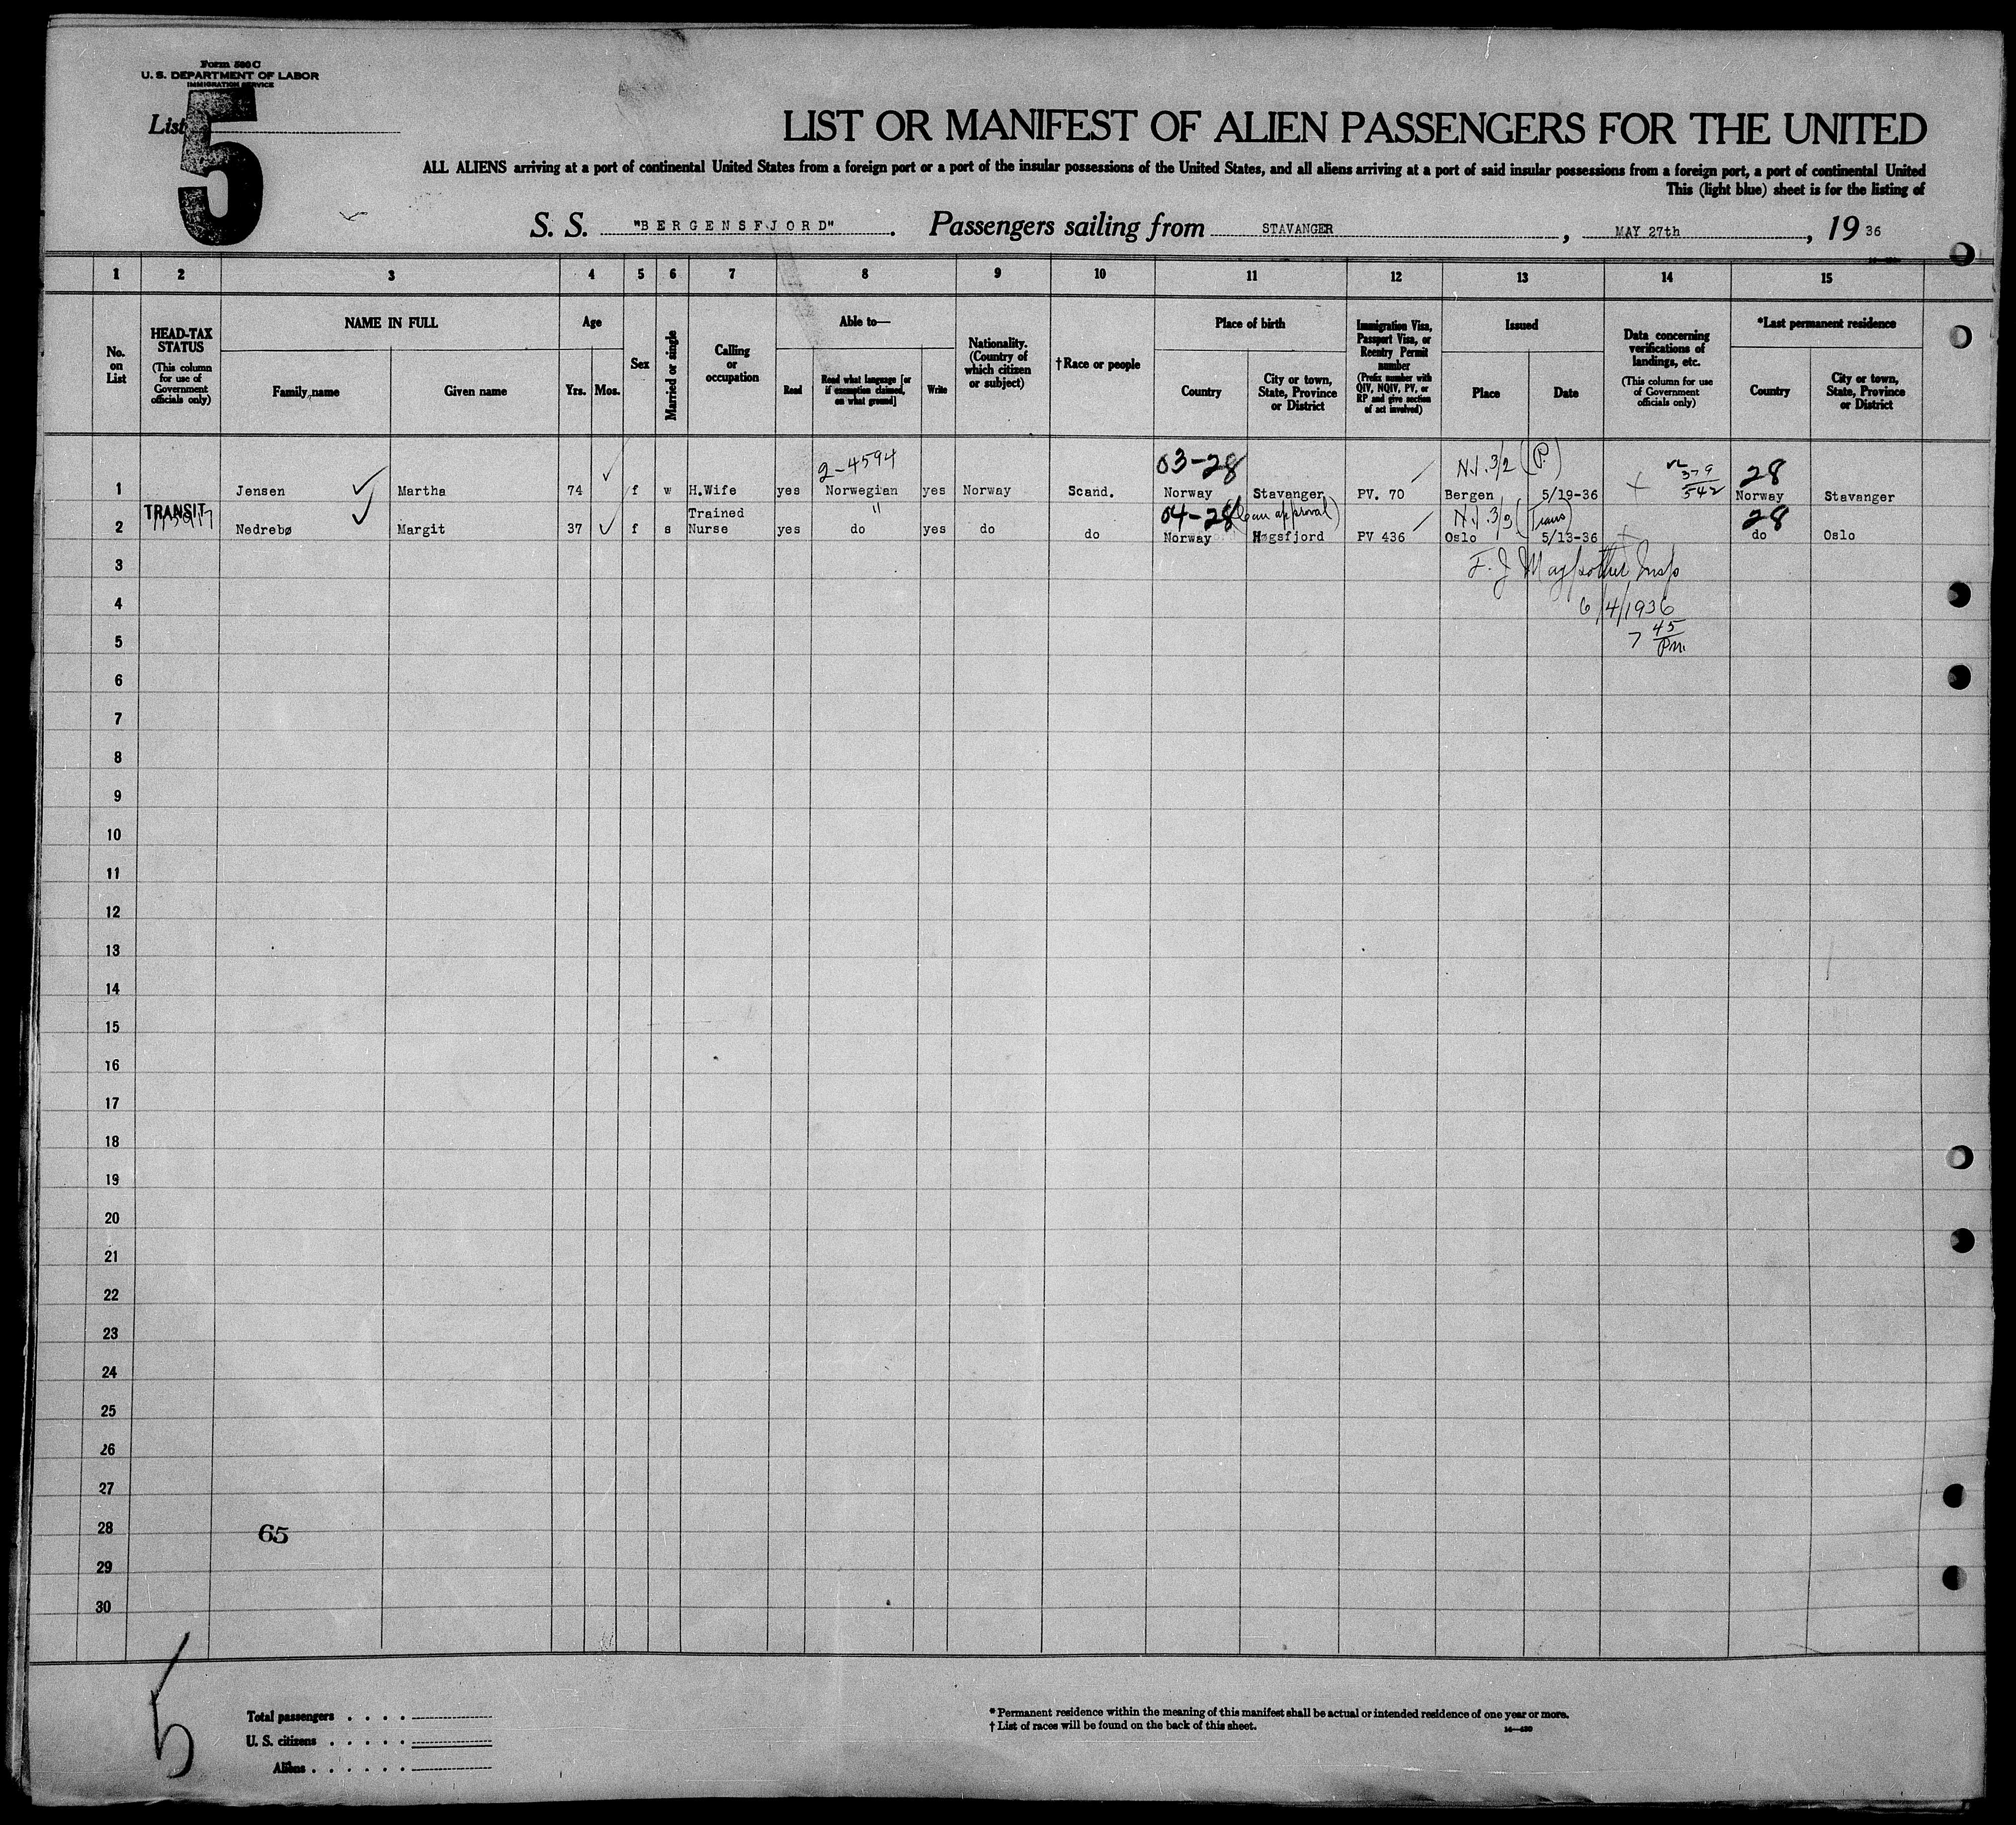 Form 580 C
U. S. DEPARTMENT OF LABOR
IMMIGRATION SERVICE
List 5
LIST OR MANIFEST OF ALIEN PASSENGERS FOR THE UNITED
ALL ALIENS arriving at a port of continental United States from a foreign port or a port of the insular possessions of the United States, and all aliens arriving at a port of said insular possessions from a foreign port, a port of continental United
This (light blue) sheet is for the listing of
S. S. "BERGENSFJORD". Passengers sailing from STAVANGER, MAY 27th, 1936
1 2 3 4 5 6 7 8 9 10 11 12 13 14 15
No. on List
HEAD-TAX STATUS (This column for use of Government officials only)
NAME IN FULL
Family name
Given name
Age
Yrs. Mos.
Sex
Married or single
Calling or occupation
Able to—
Read
Read what language [or if exemption claimed, on what ground]
Write
Nationality. (Country of which citizen or subject)
†Race or people
Place of birth
Country
City or town, State, Province or District
Immigration Visa, Passport Visa, or Reentry Permit number (Prefix number with QIV, NQIV, PV, or RP and give section of act involved)
Issued
Place
Date
Data concerning verifications of landings, etc. (This column for use of Government officials only)
*Last permanent residence
Country
City or town, State, Province or District
2-4594 03-28 N.J. 3/2 (P) 379 28
1 Jensen Martha 74 f w H.Wife yes Norwegian yes Norway Scand. Norway Stavanger PV. 70 Bergen 5/19-36 542 Norway Stavanger
TRANSIT Trained " 04-28 (Can approval) N.J. 3/3 (Trans) 28
2 Nedrebø Margit 37 f s Nurse yes do yes do do Norway Høgsfjord PV 436 Oslo 5/13-36 do Oslo
3 F. J. Insp
4 6/4/1936
5 7 45 Pm.
6
7
8
9
10
11
12
13
14
15
16
17
18
19
20
21
22
23
24
25
26
27
28 65
29
30
5
Total passengers . . . .
U. S. citizens . . . . .
Aliens . . . . . .
* Permanent residence within the meaning of this manifest shall be actual or intended residence of one year or more.
† List of races will be found on the back of this sheet.